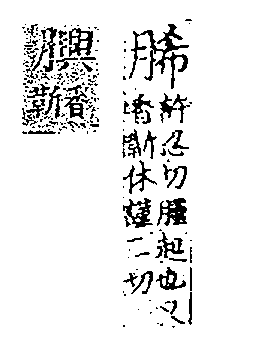 脪
許忍切腫起也又
香靳休謹二切
香
靳